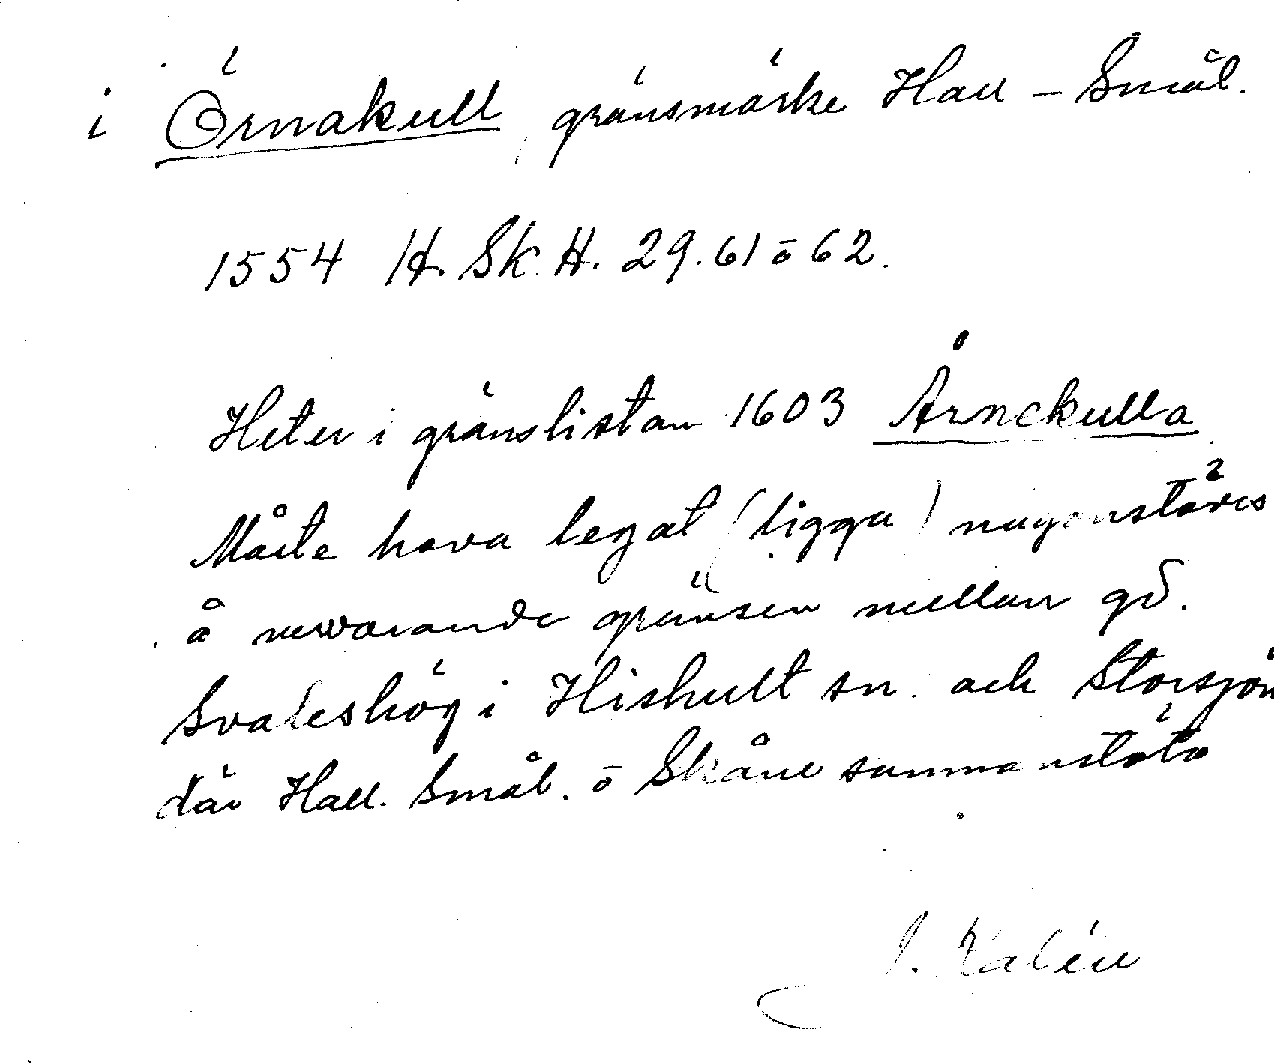 i Örnakull, gränsmärke Hall – Smål.
1554 H. Sk. H. 29. 61 o 62.
Heter i gränslistan 1603 Årnekulla
Måste hava legat (ligga) någonstädes
å nuvarande gränsen mellan gd.
Svaleshög i Hishult sn. och Storsjön
där Hall. Smål. o Skåne sammanstöta
J. Kalén